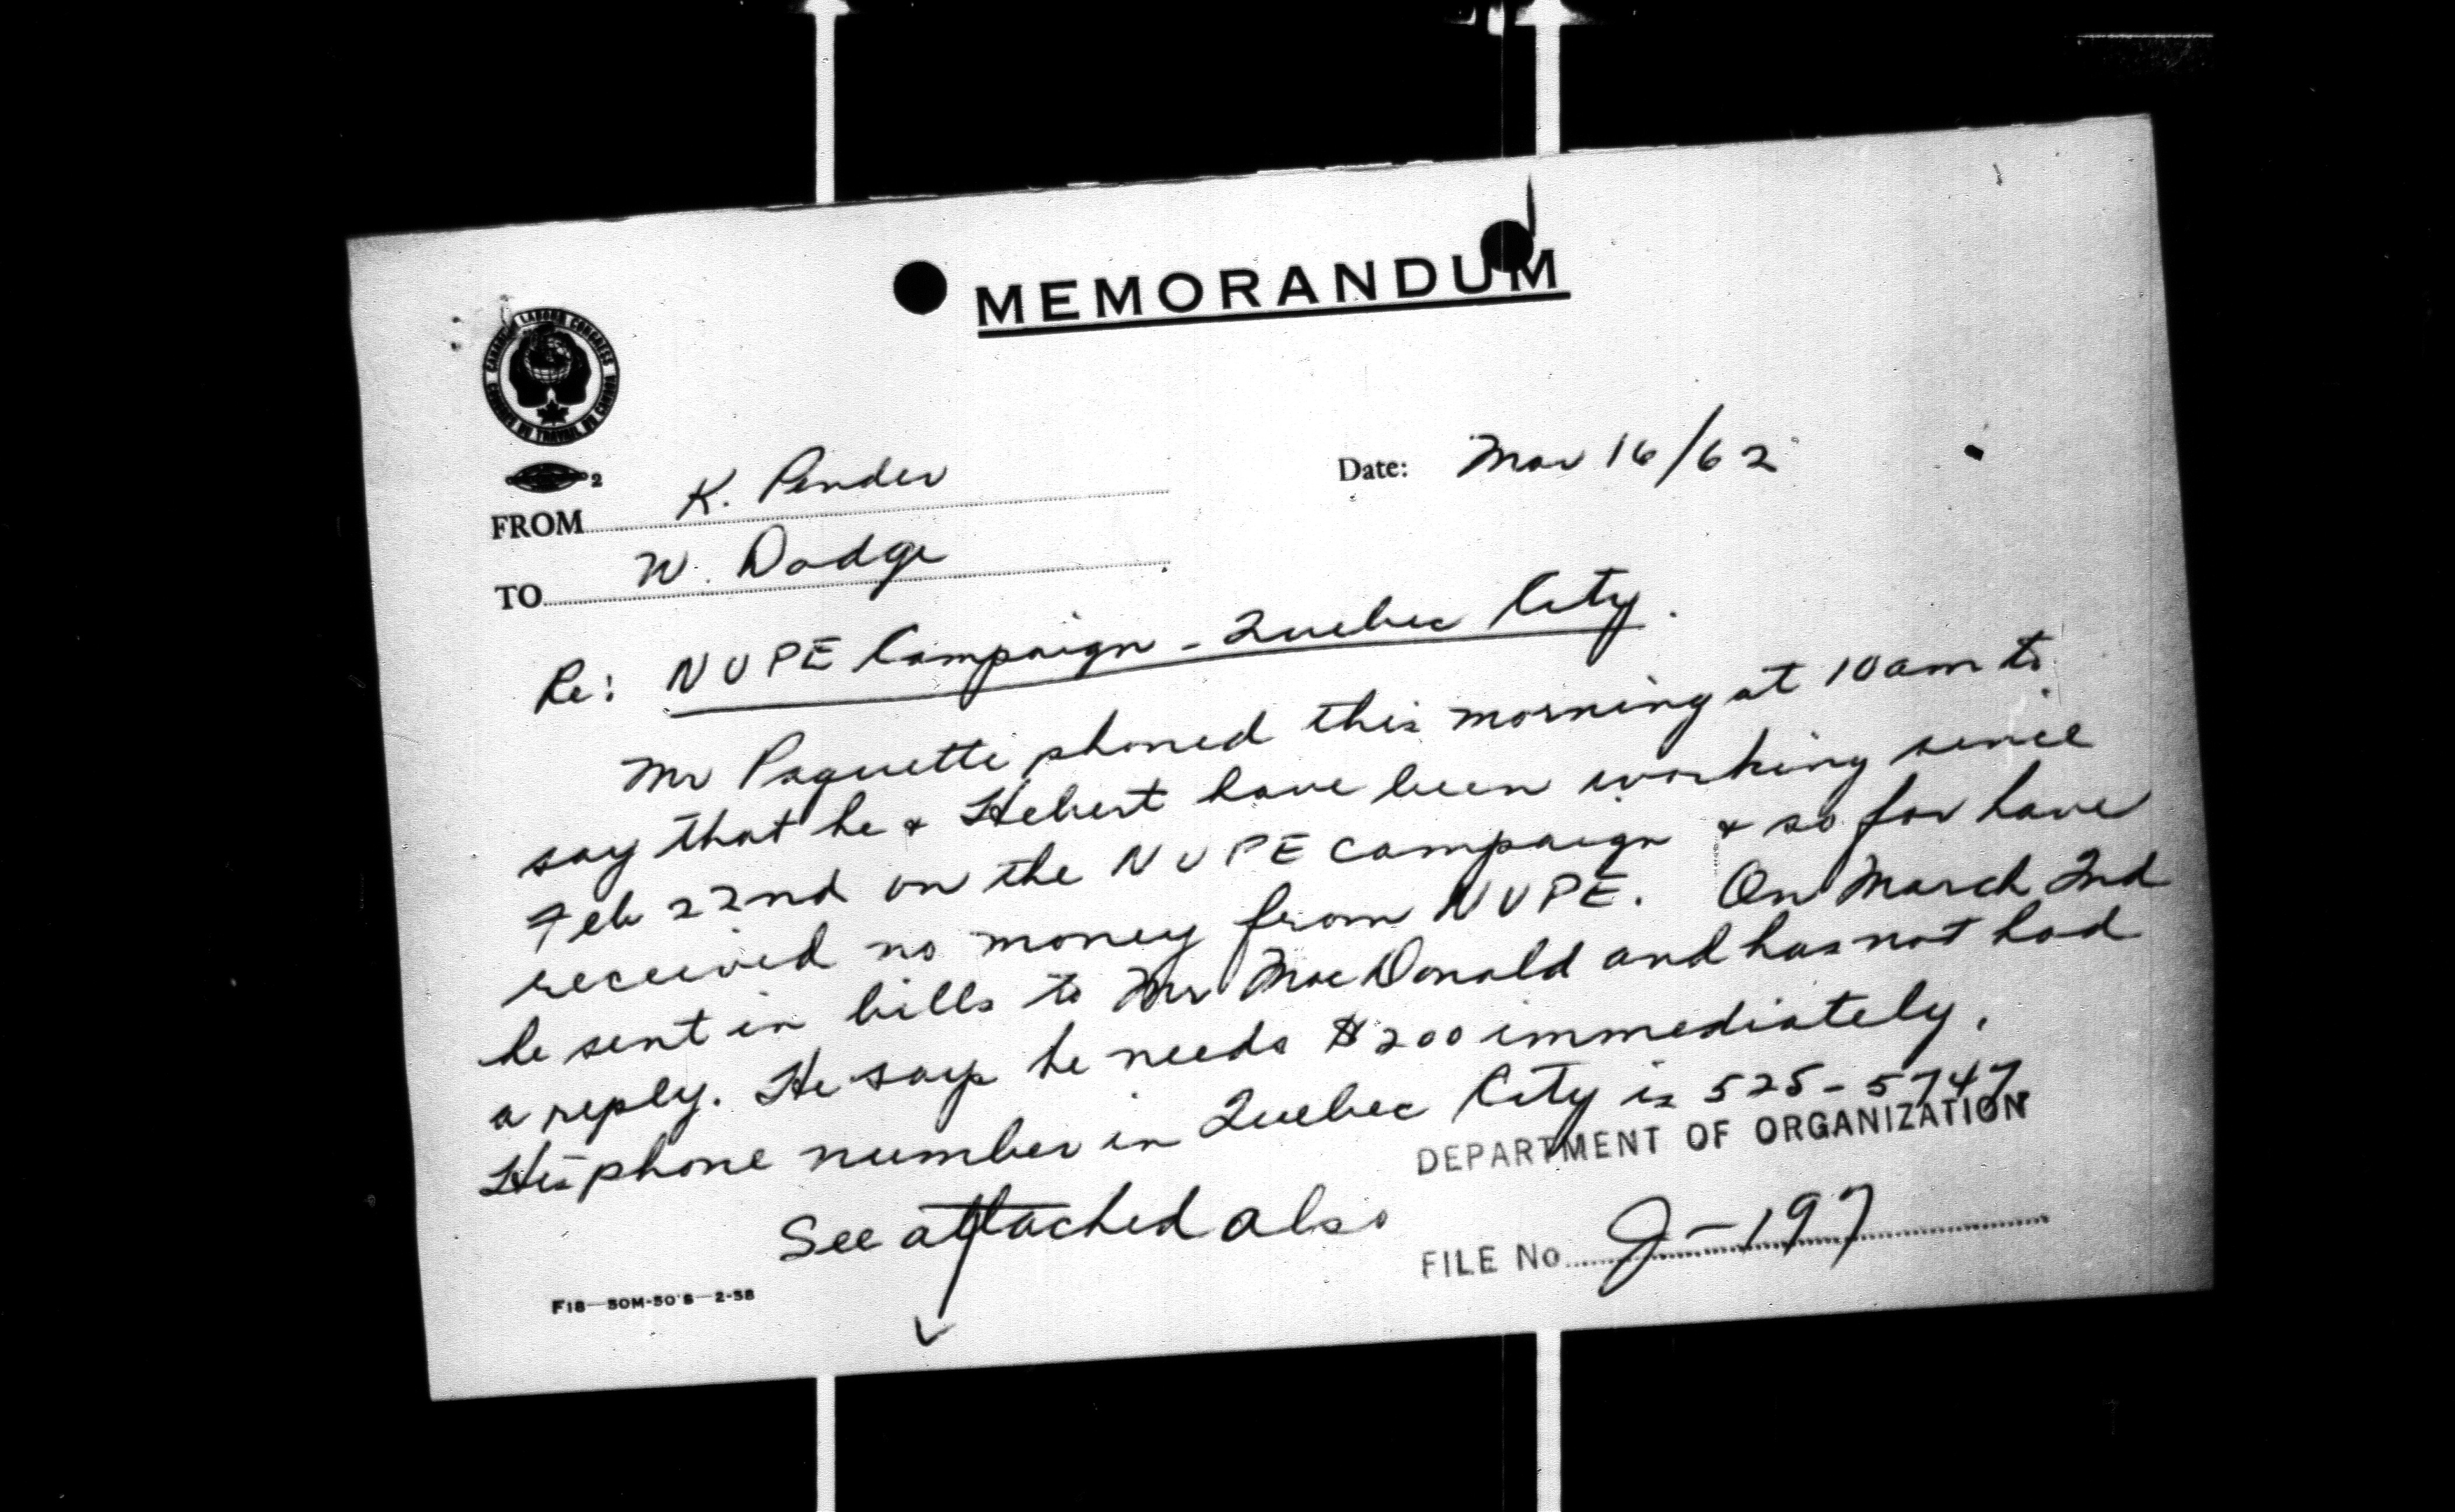 MEMORANDUM
CANADIAN LABOUR CONGRESS
CONGRÈS DU TRAVAIL DU CANADA
2
FROM K. Pender
Date: Mar 16/62
TO W. Dodge
Re: NUPE Campaign - Quebec City.
Mr Paquette phoned this morning at 10am to
say that he & Hebert have been working since
Feb 22nd on the NUPE campaign & so far have
received no money from NUPE. On March 2nd
he sent in bills to Mr MacDonald and has not had
a reply. He says he needs $200 immediately.
His phone number in Quebec City is 525-5747.
DEPARTMENT OF ORGANIZATION
See attached also
FILE No. J-197
F18—50M-50's—2-58